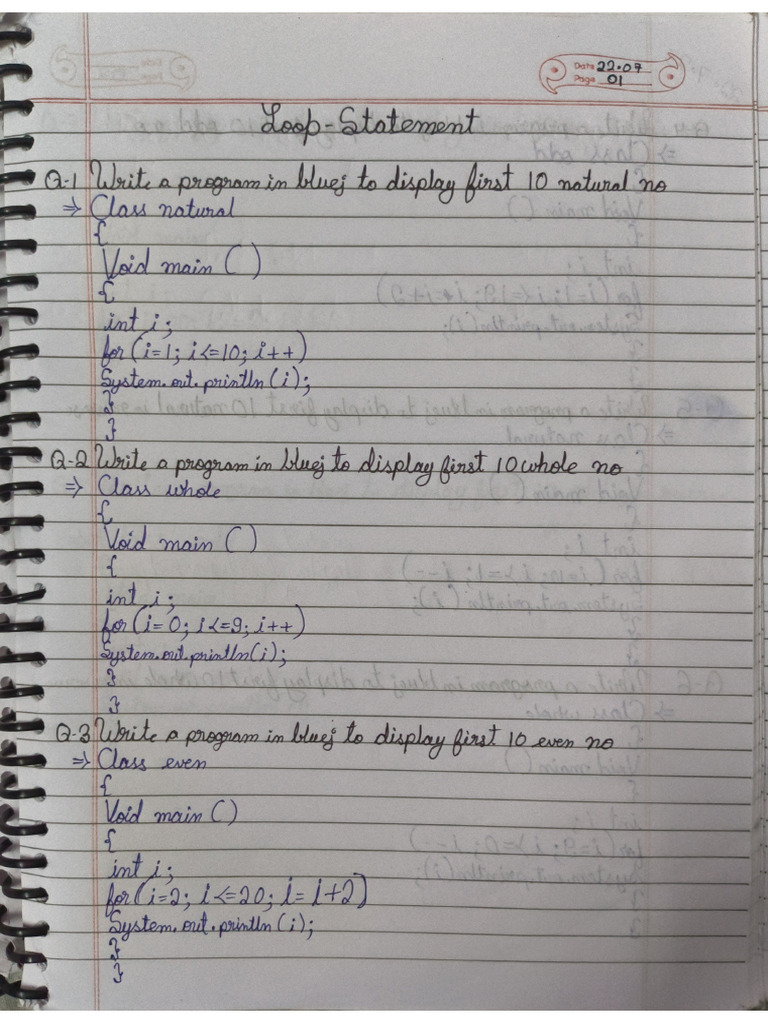 Date 22.07
Page 01
Loop-Statement
Q-1 Write a program in bluej to display first 10 natural no
⇒ Class natural
{
Void main ( )
{
int i;
for(i=1; i<=10; i++)
System.out.println(i);
}
}
Q-2 Write a program in bluej to display first 10 whole no
⇒ Class whole
{
Void main ( )
{
int i;
for(i=0; i<=9; i++)
System.out.println(i);
}
}
Q-3 Write a program in bluej to display first 10 even no
⇒ Class even
{
Void main ( )
{
int i;
for(i=2; i<=20; i=i+2)
System.out.println(i);
}
}